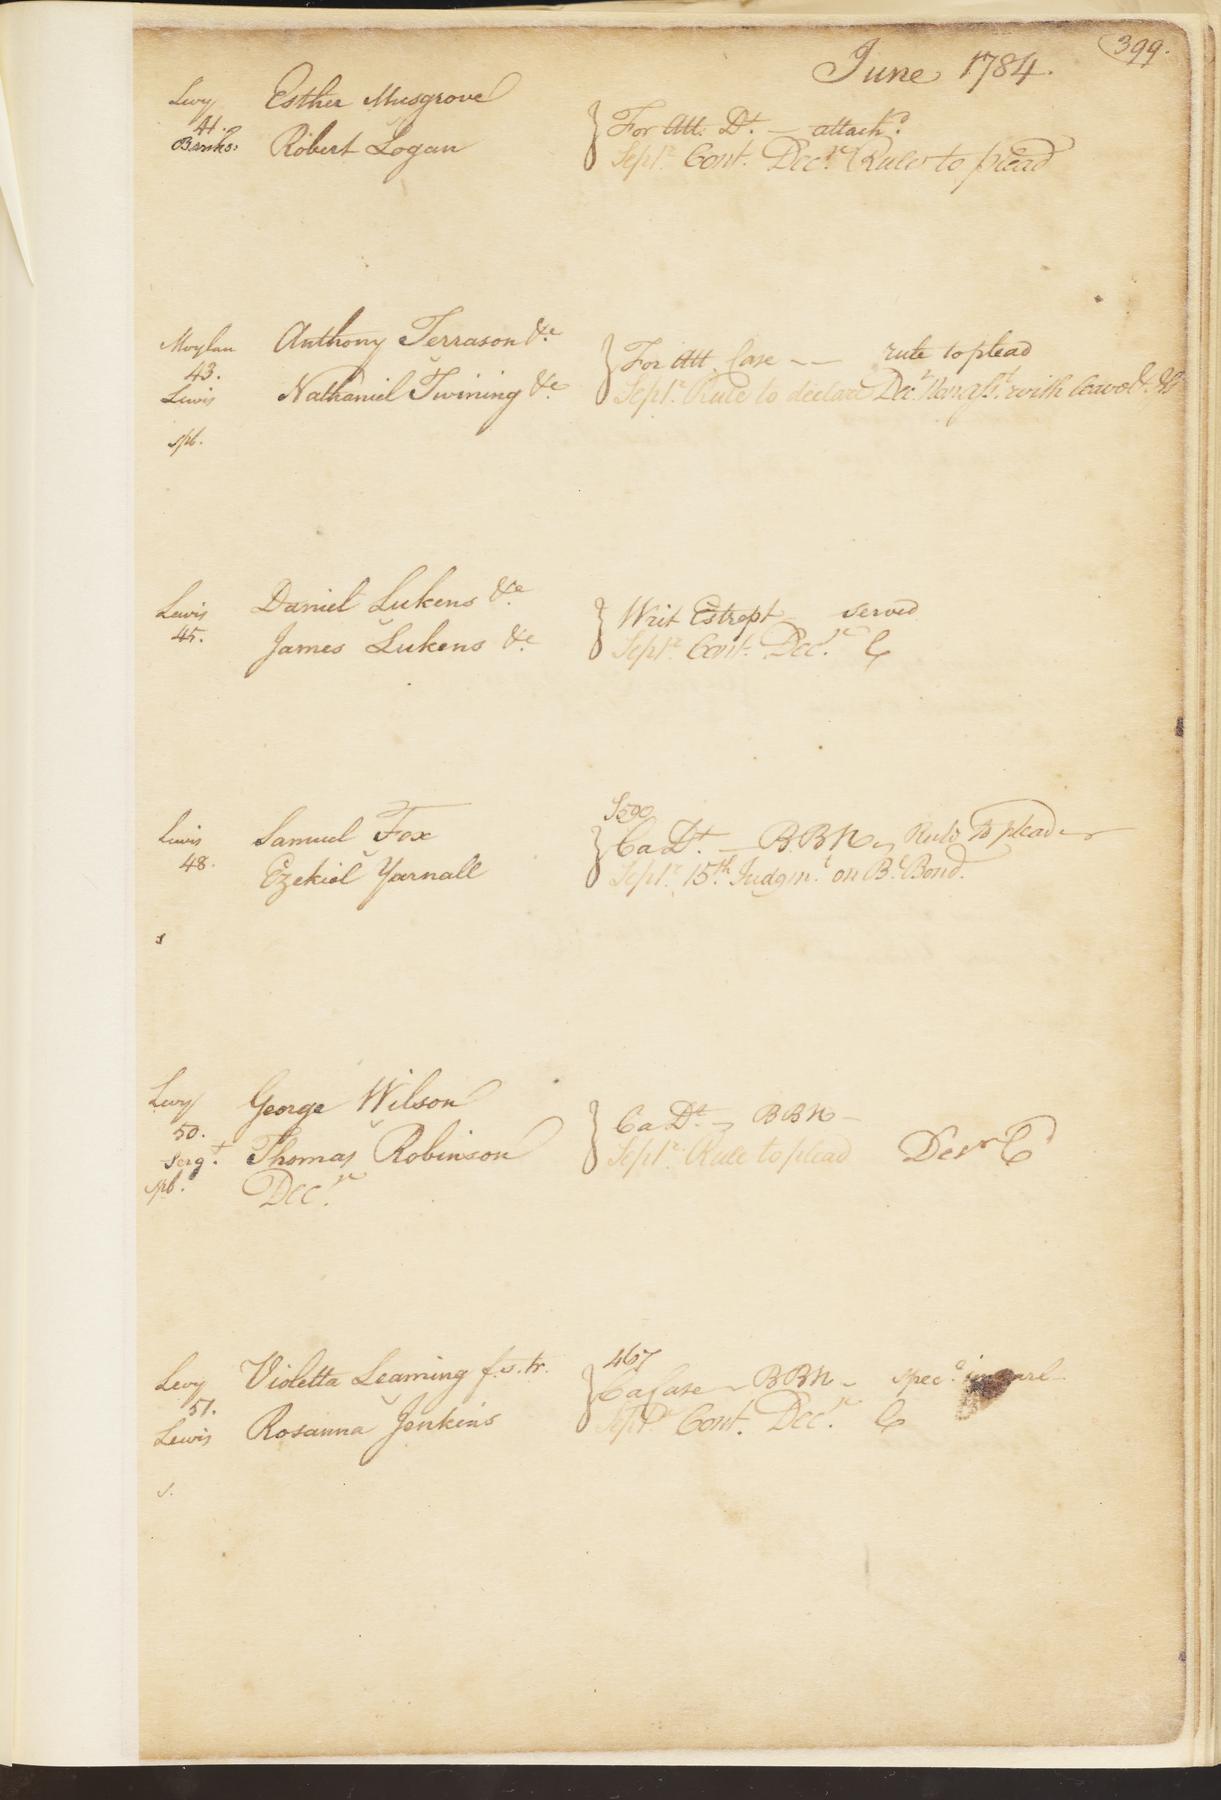 399.
June 1784.
Levy Esther Musgrove
41. For Att. Dt. — attachd.
Banks: Robert Logan Septr. Cont. Decr. Rule to plead
Moylan Anthony Terrason &c
43. For Att. Case — — rule to plead
Lewis Nathaniel Twining &c Septr. Rule to declare with leave &c.
spl.
Lewis Daniel Lukens &c
45. Writ Estrept served
James Lukens &c Septr. Cont. Decr. C
Lewis Samuel Fox Ca Dt. — BBN Rule to plead
48. Ezekiel Yarnall Septr. 15th. Judgmt. on Bl. Bond.
s
Levy George Wilson
50. Ca Dt. — BBN —
Sergt. Thomas Robinson Septr. Rule to plead
spl. Decr.
467
Levy Violetta Leaming f.s.tr. Ca Case — BBN — specl.
51.
Lewis Rosanna Jenkins Septr. Cont. Decr. C
s.